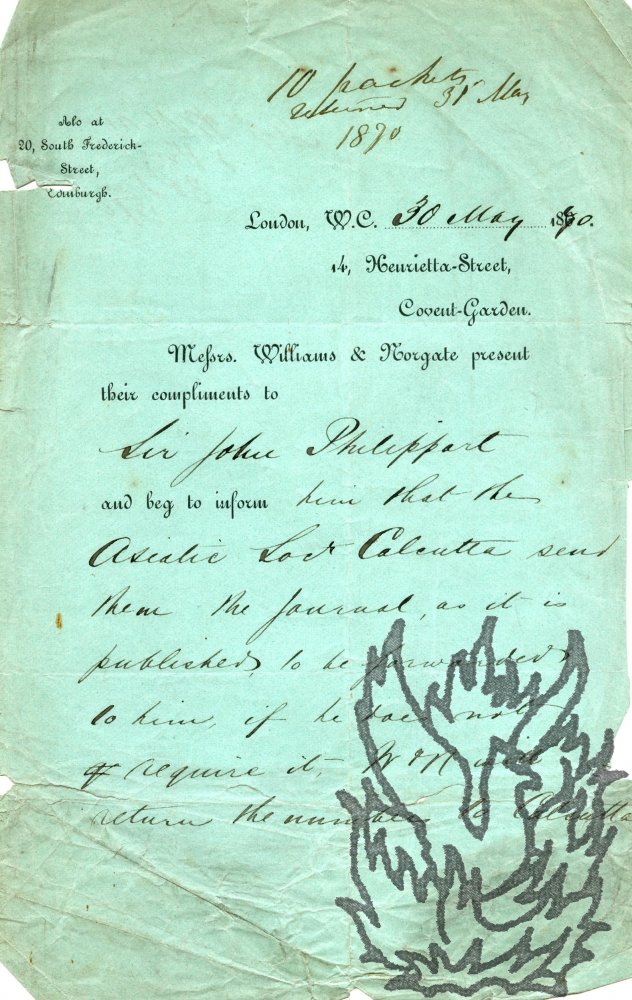 10 packets
returned 31 May
1870
Also at
20, South Frederick-
Street,
Edinburgh.
London, W.C. 30 May 1870.
14, Henrietta-Street,
Covent-Garden.
Messrs. Williams & Norgate present
their compliments to
Sir John Philippart
and beg to inform him that the
Asiatic Socy Calcutta send
them the Journal, as it is
published, to be forwarded
to him, if he does not
require it, W & N will
return the numbers to Calcutta